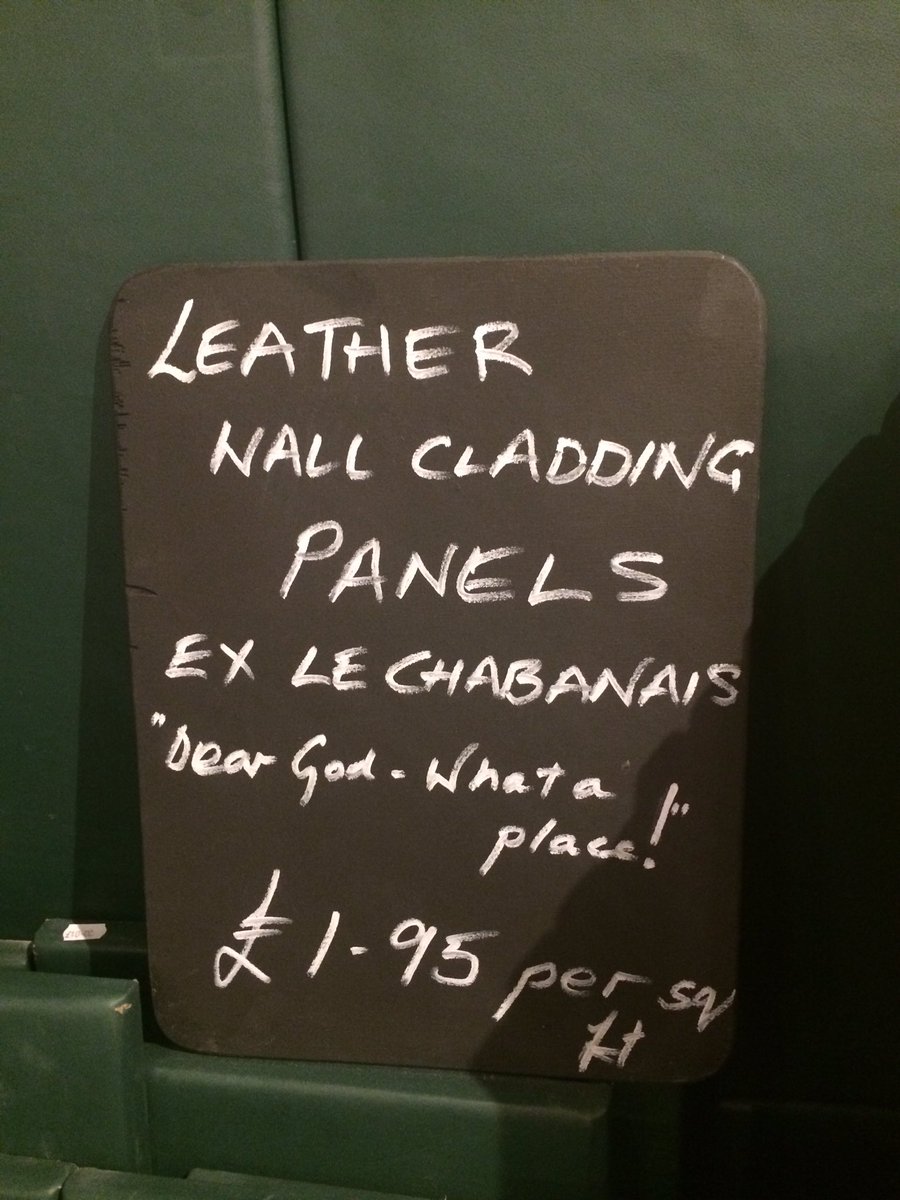 LEATHER
WALL CLADDING
PANELS
EX LE CHABANAIS
"Dear God - What a
place!"
£1-95 per sq
ft